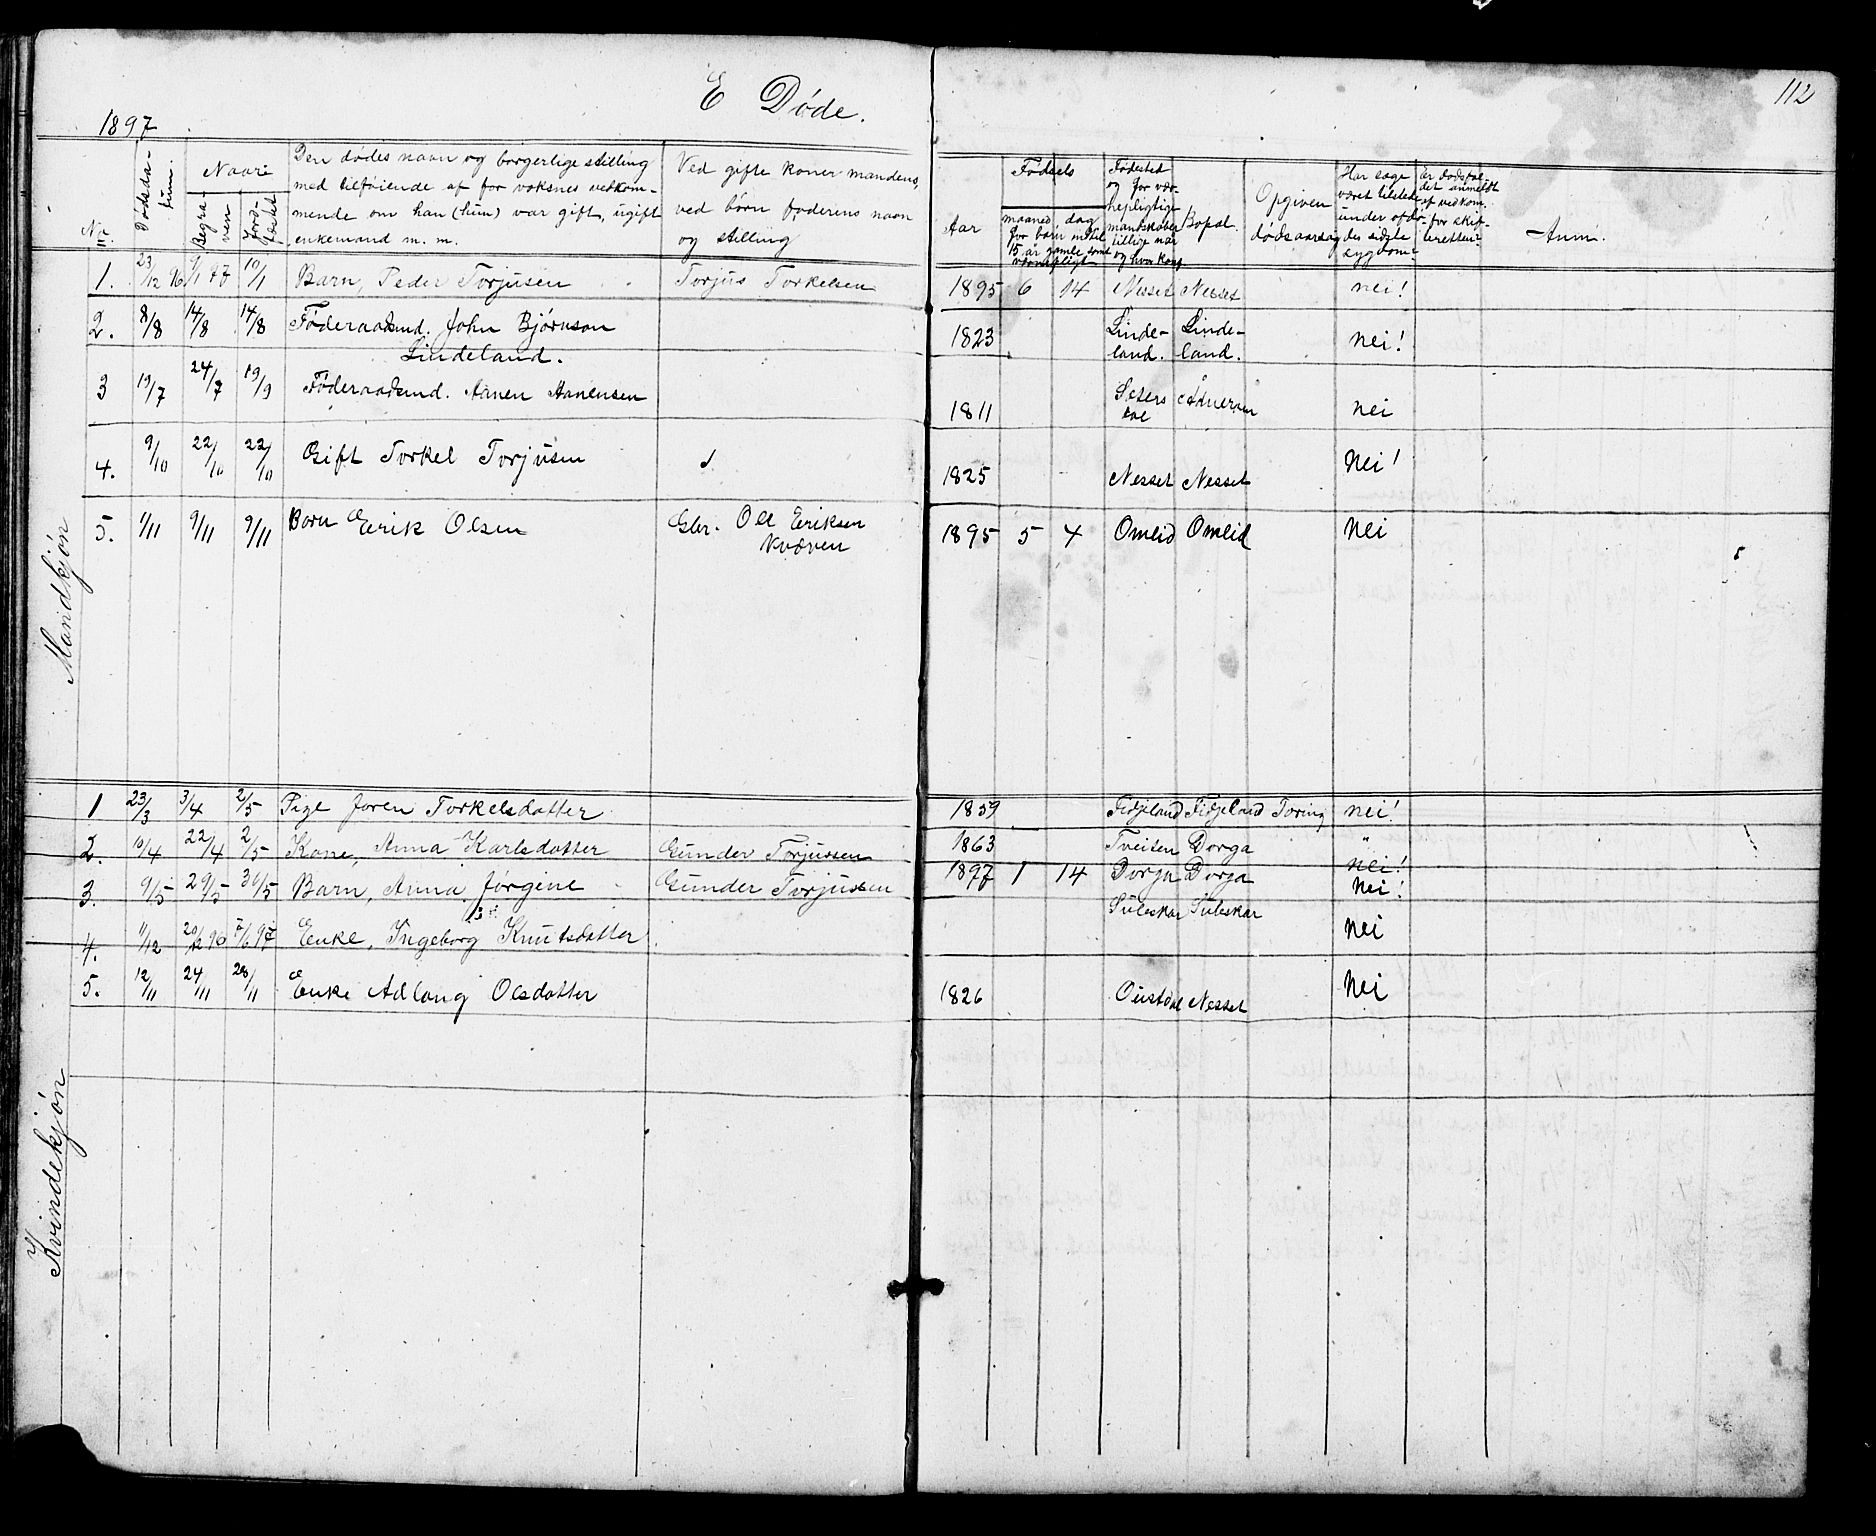 E Døde.
112
1897
Nr. Dødsda-tum. Naar: Begra-ven Jord-fæstet Den dødes navn og borgerlige stilling med tilføiende af for voksnes vedkom-mende om han (hun) var gift, ugift enkemand m. m. Ved gifte koner mandens, ved børn faderens navn og stilling Aar Fødsels maaned dag for barn indtil 15 år gamle samt Fødested og for vær-nepligtige mandskaber tillige når og hvor Bopæl. Opgiven dødsaarsag Har læge været tilstede under afdø-des sidste sygdom Er dødsfal-det anmeldt af vedkom. for skif-teretten Anm.
Mandkjøn
1. 23/12 96 9/1 97 10/1 Barn, Peder Torjusen Torjus Torkelsen 1895 6 14 Nesset Nesset nei!
2. 8/8 14/8 14/8 Føderaadsmd. John Bjørnson Lindeland. 1823 Linde-land. Linde-land. nei!
3 19/7 24/7 19/9 Føderaadsmd. Aanen Aanensen 1811 Seters dal Ådneram nei
4. 9/10 22/10 22/10 Gift Torkel Torjusen 1825 Nesset Nesset nei!
5. 1/11 9/11 9/11 Barn Eerik Olsen Gbr. Ole Eeriksen Kvæven 1895 5 4 Omlid Omlid nei
Kvindekjøn
1 23/3 3/4 2/5 Pige Joren Torkelsdatter 1859 Fidjeland Fidjeland Tæring nei!
2. 10/4 22/4 2/5 Kone, Anna Karlsdatter Gunder Torjussen 1863 Tveiten Dorga " nei!
3. 9/5 29/5 30/5 Barn, Anna Jørgine Gunder Torjussen 1897 1 14 Dorga Dorga nei!
4. 11/12 20/12 96 7/6 97 Enke, Ingeborg Knutsdatter Suleskar Suleskar nei
5. 12/11 24/11 28/11 Enke Adlaug Olsdatter 1826 Oustdal Nesset nei